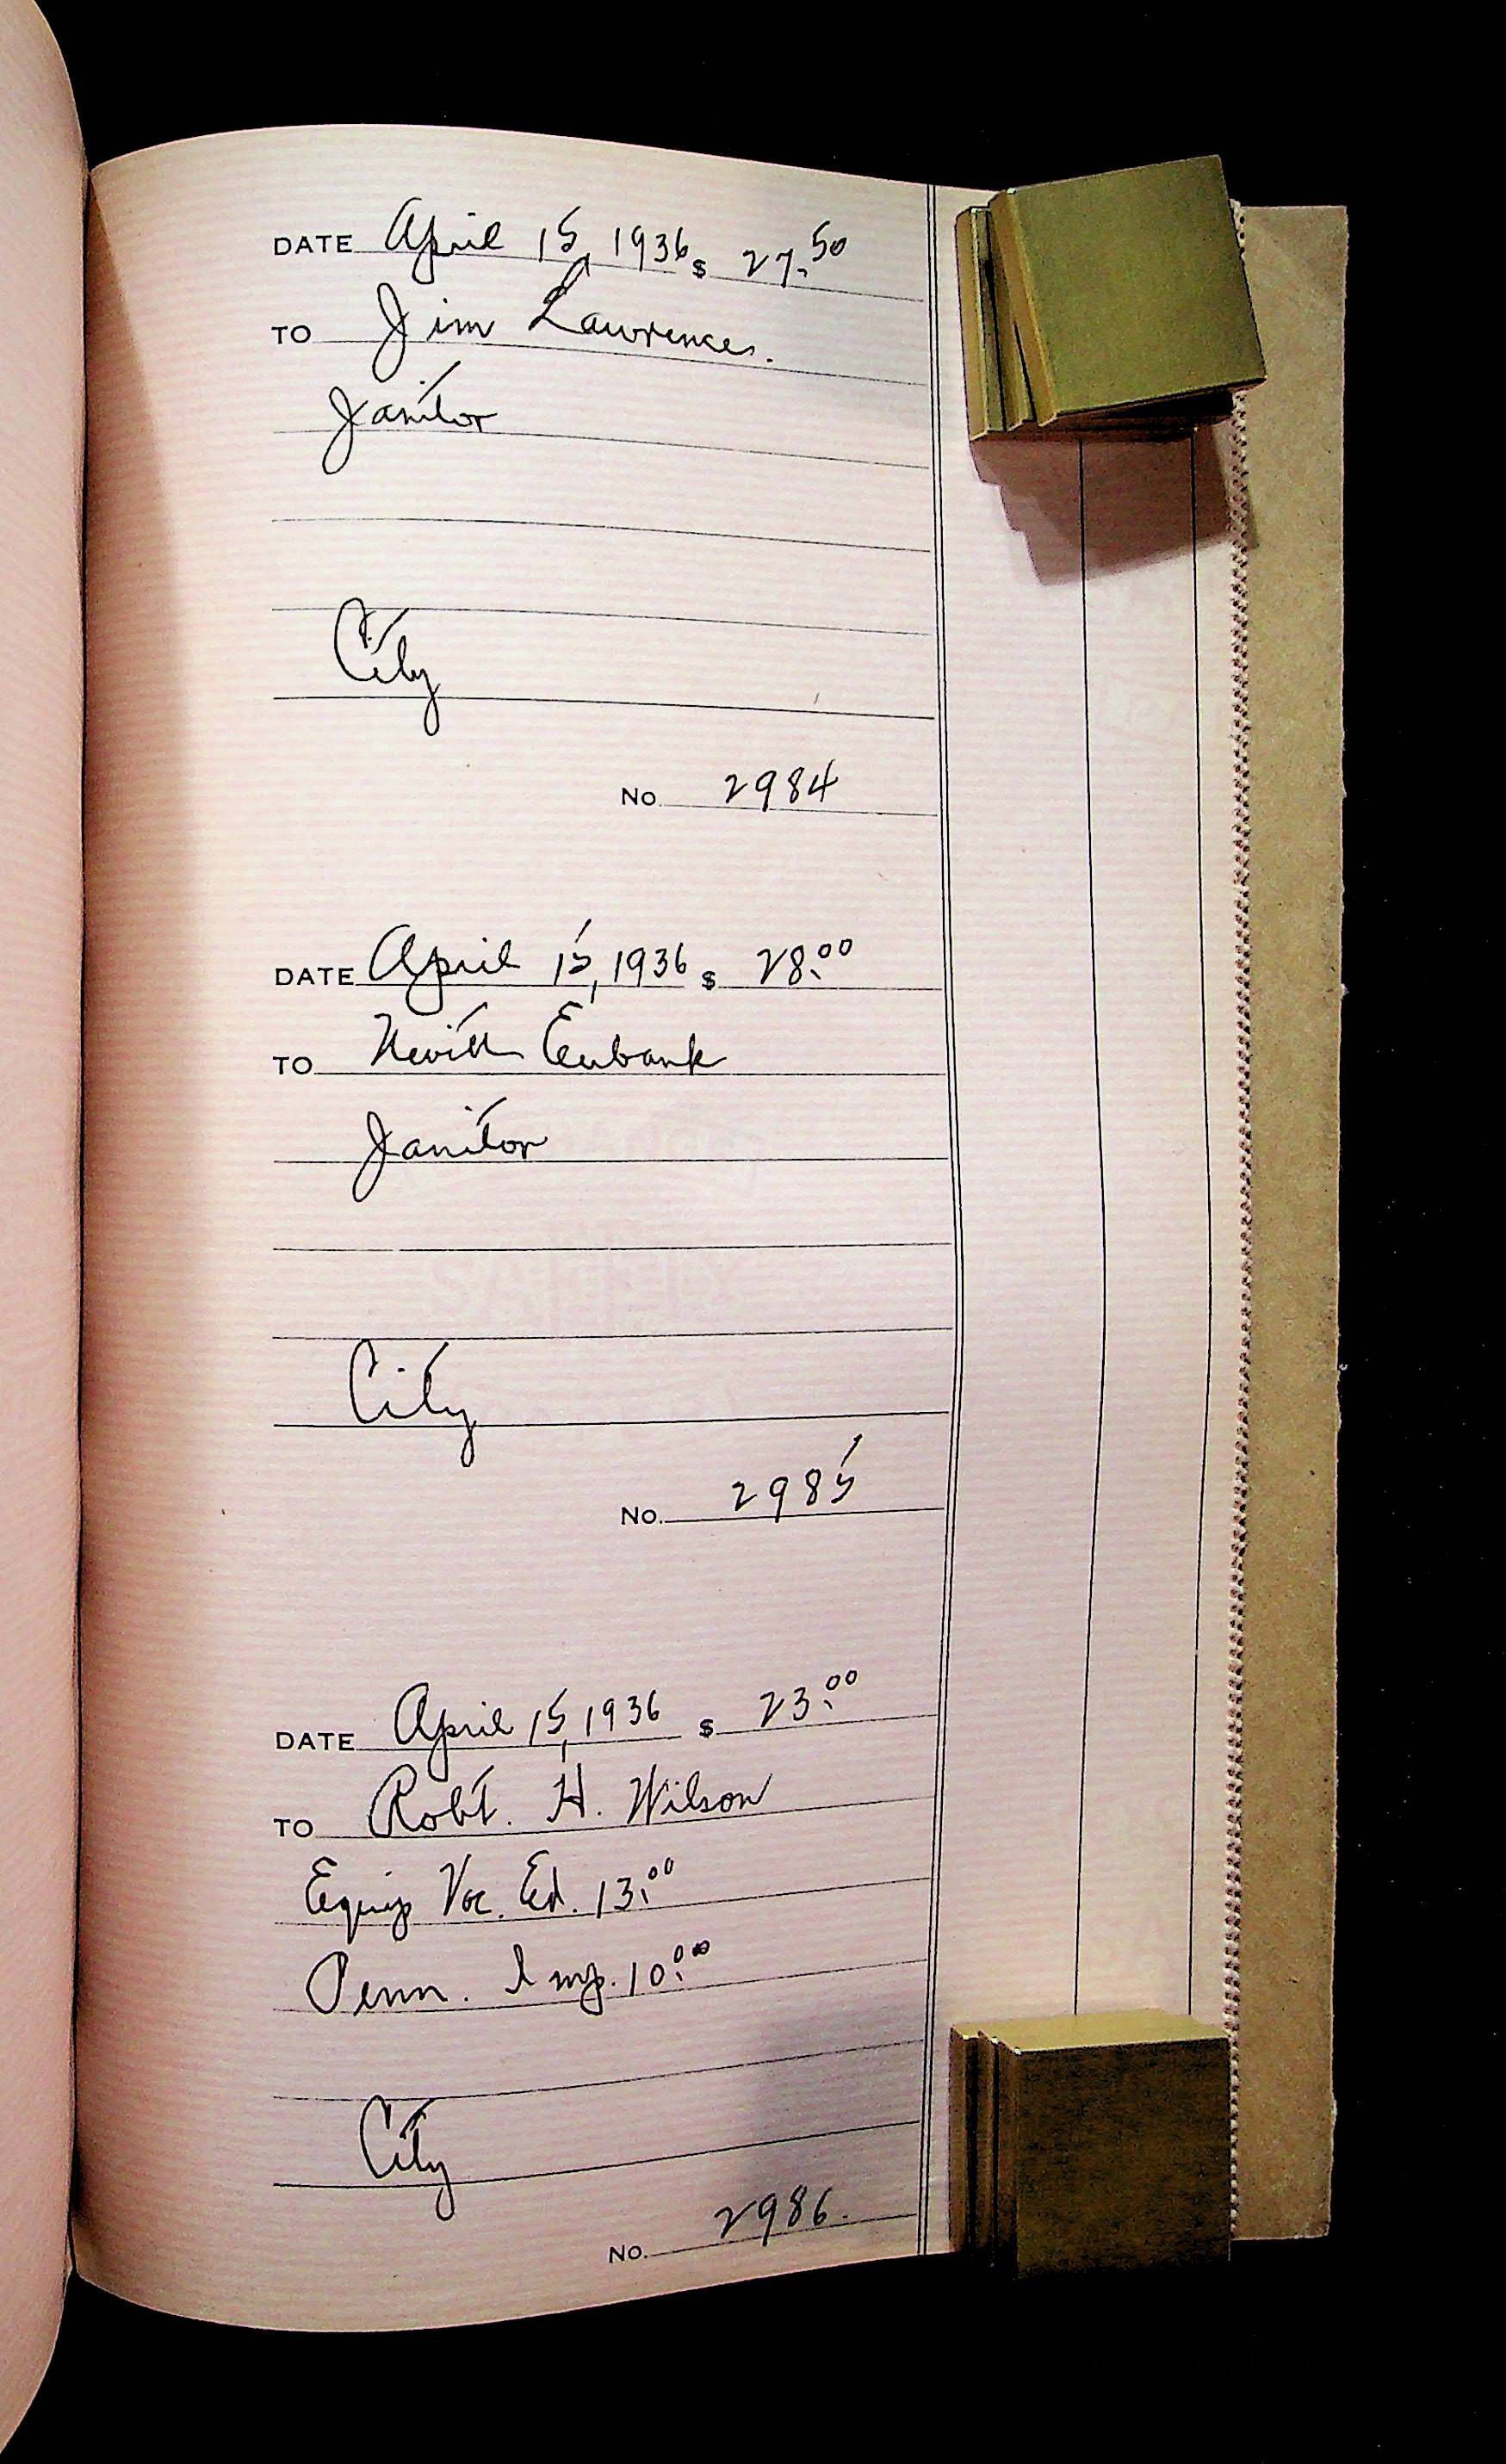 DATE April 15, 1936 $ 27.50
TO Jim Lawrence.
Janitor
City
No. 2984
DATE April 15, 1936 $ 28.00
TO Nevitt Eubank
Janitor
City
No. 2985
DATE April 15, 1936 $ 23.00
TO Robt. H. Wilson
Equip Voc. Ed. 13.00
Penn. Imp. 10.00
City
No. 2986.